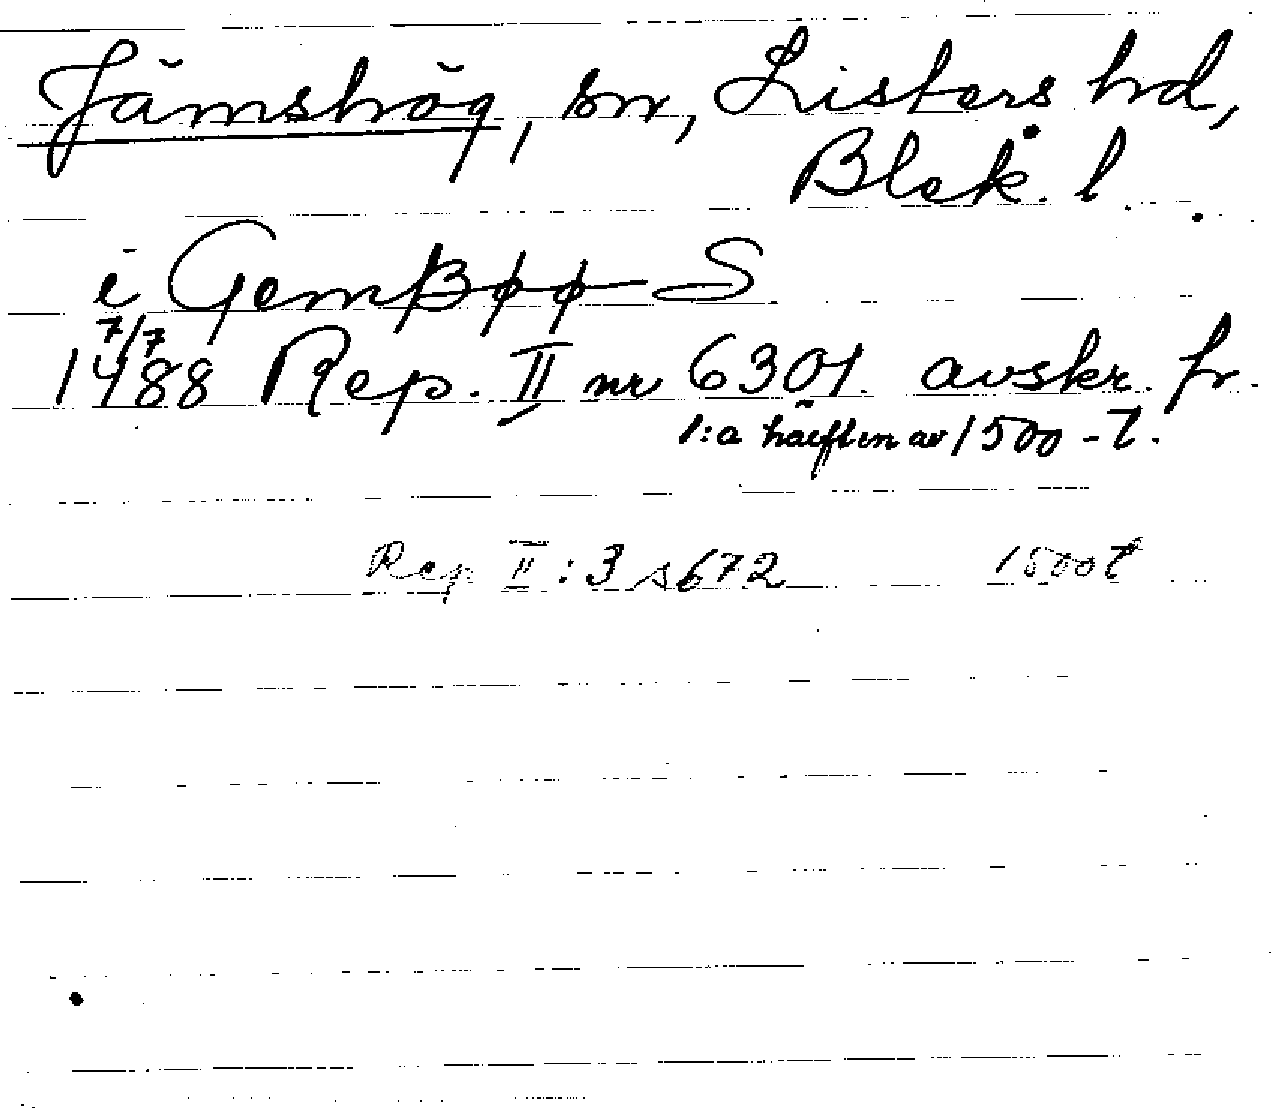 Jämshög, sn, Listers hd,
Blek. l.
i Gemβφφ S
7/7
1488 Rep. II nr 6301. avskr. fr.
1:a hälften av 1500-t.
Rep II:3 s 672 1500t